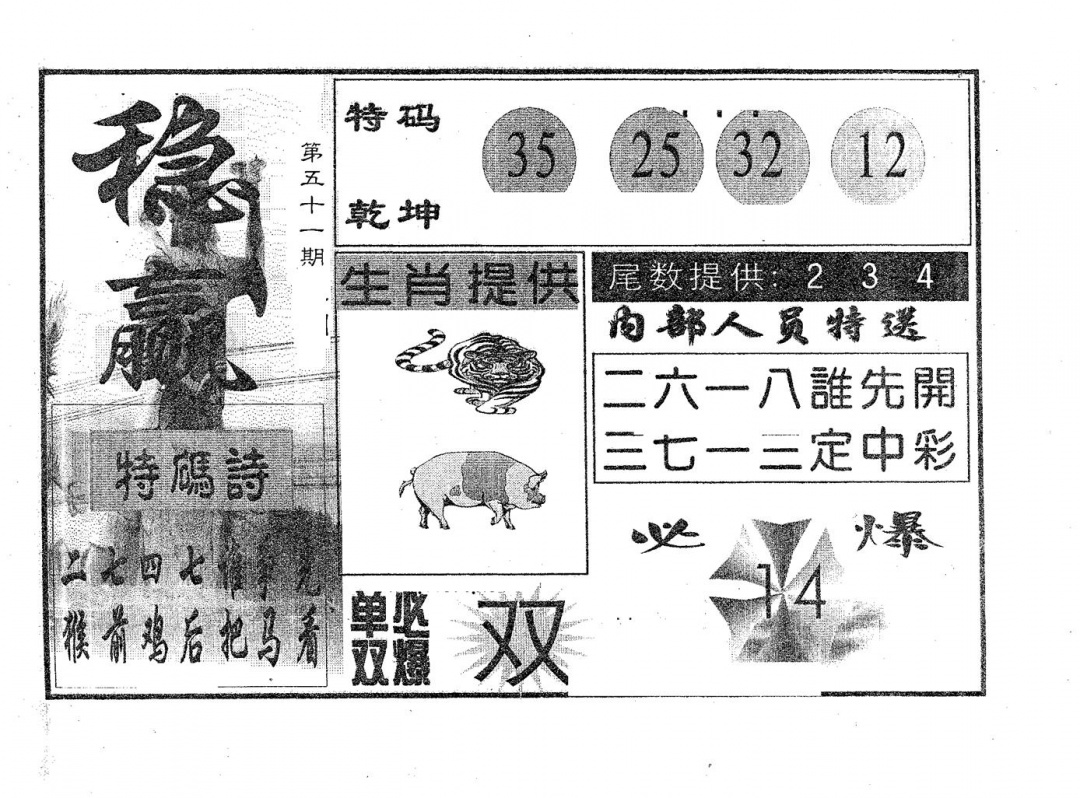 稳赢
第五十一期
特码
乾坤
35 25 32 12
生肖提供
尾数提供: 2 3 4
内部人员特送
二六一八誰先開
三七一三定中彩
特碼詩
二七四七
猴前鸡后把马看
单双必爆
双
必爆
14